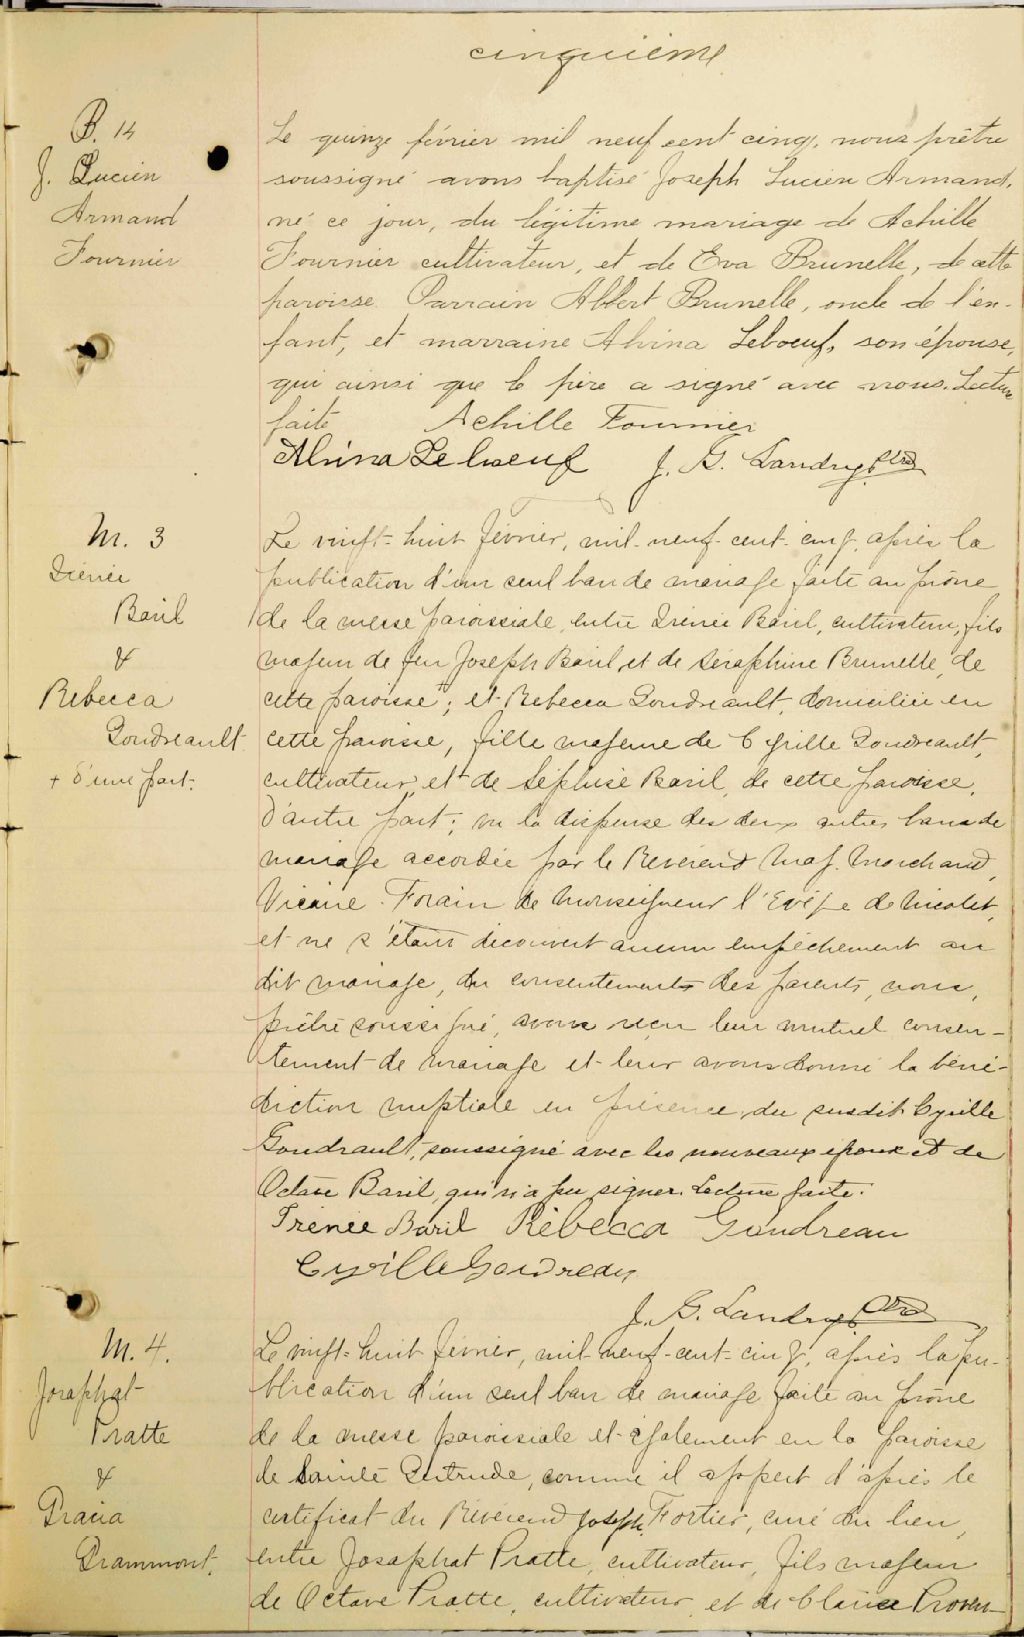 cinquième
B. 14
J. Lucien
Armand
Fournier
Le quinze février mil neuf cent cinq, nous prêtre
soussigné avons baptisé Joseph Lucien Armand,
né ce jour, du légitime mariage de Achille
Fournier cultivateur, et de Eva Brunelle, de cette
paroisse. Parrain Albert Brunelle, oncle de l'en-
fant, et marraine Alvina Leboeuf, son épouse,
qui ainsi que le père a signé avec nous. Lecture
faite
Achille Fournier
Alvina Leboeuf J. G. Landry ptre
M. 3
Irénée
Baril
&
Rebecca
Goudreault
+ d'une part.
Le vingt-huit février, mil-neuf-cent-cinq, après la
publication d'un seul ban de mariage faite au prône
de la messe paroissiale, entre Irénée Baril, cultivateur, fils
majeur de feu Joseph Baril, et de Séraphine Brunelle, de
cette paroisse +; et Rebecca Goudreault, domiciliée en
cette paroisse, fille majeure de Cyrille Goudreault,
cultivateur, et de Baril, de cette paroisse,
d'autre part; vu la dispense des deux autres bans de
mariage accordée par le Révérend Marchand,
Vicaire-Forain de Monseigneur l'Evêque de Nicolet,
et ne s'étant découvert aucun empêchement au
dit mariage, du consentement des parents, nous,
prêtre soussigné, avons reçu leur mutuel consen-
tement de mariage et leur avons donné la béné-
diction nuptiale en présence du susdit Cyrille
Goudrault, soussigné avec les nouveaux époux et de
Octave Baril, qui n'a pu signer. Lecture faite.
Irénée Baril Rébecca Goudreau
Cyrille Goudreau
J. G. Landry ptre
M. 4.
Josaphat
Pratte
&
Grammont.
Le vingt-huit février, mil-neuf-cent-cinq, après la pu-
blication d'un seul ban de mariage faite au prône
de la messe paroissiale et également en la paroisse
de Sainte Gertrude, comme il appert d'après le
certificat du Révérend Joseph Fortier, curé du lieu,
entre Josaphat Pratte, cultivateur, fils majeur
de Octave Pratte, cultivateur, et de Proven-